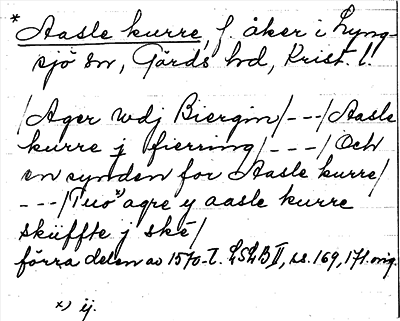 * Aasle kurre, f. åker i Lyng-
sjö sn, Gärds hd, Krist. l.
/Ager wdj Biergin/---/Aasle
kurre j fierring/---/Och
en synden for Aasle kurre/
---/Tuo x) agre y aasle kurre
sküffte j ske/
förra delen av 1570-t. LSLB II, ss. 169, 171. orig.
x) ij.